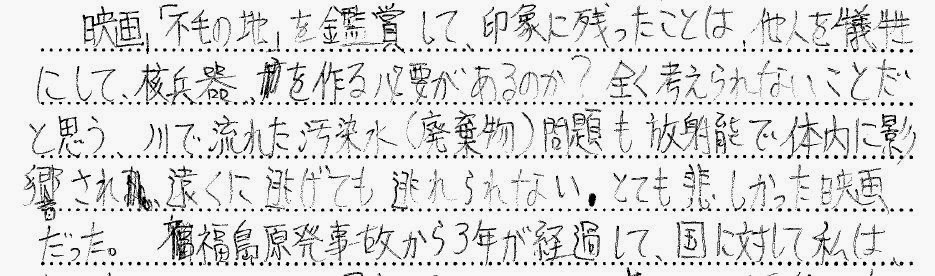 映画「不毛の地」を鑑賞して、印象に残ったことは、他人を犠牲
にして、核兵器、を作る必要があるのか?全く考えられないことだ
と思う、川で流れた汚染水(廃棄物)問題も放射能で体内に影
響され、遠くに逃げても逃れられない。とても悲しかった映画
だった。福島原発事故から3年が経過して、国に対して私は、